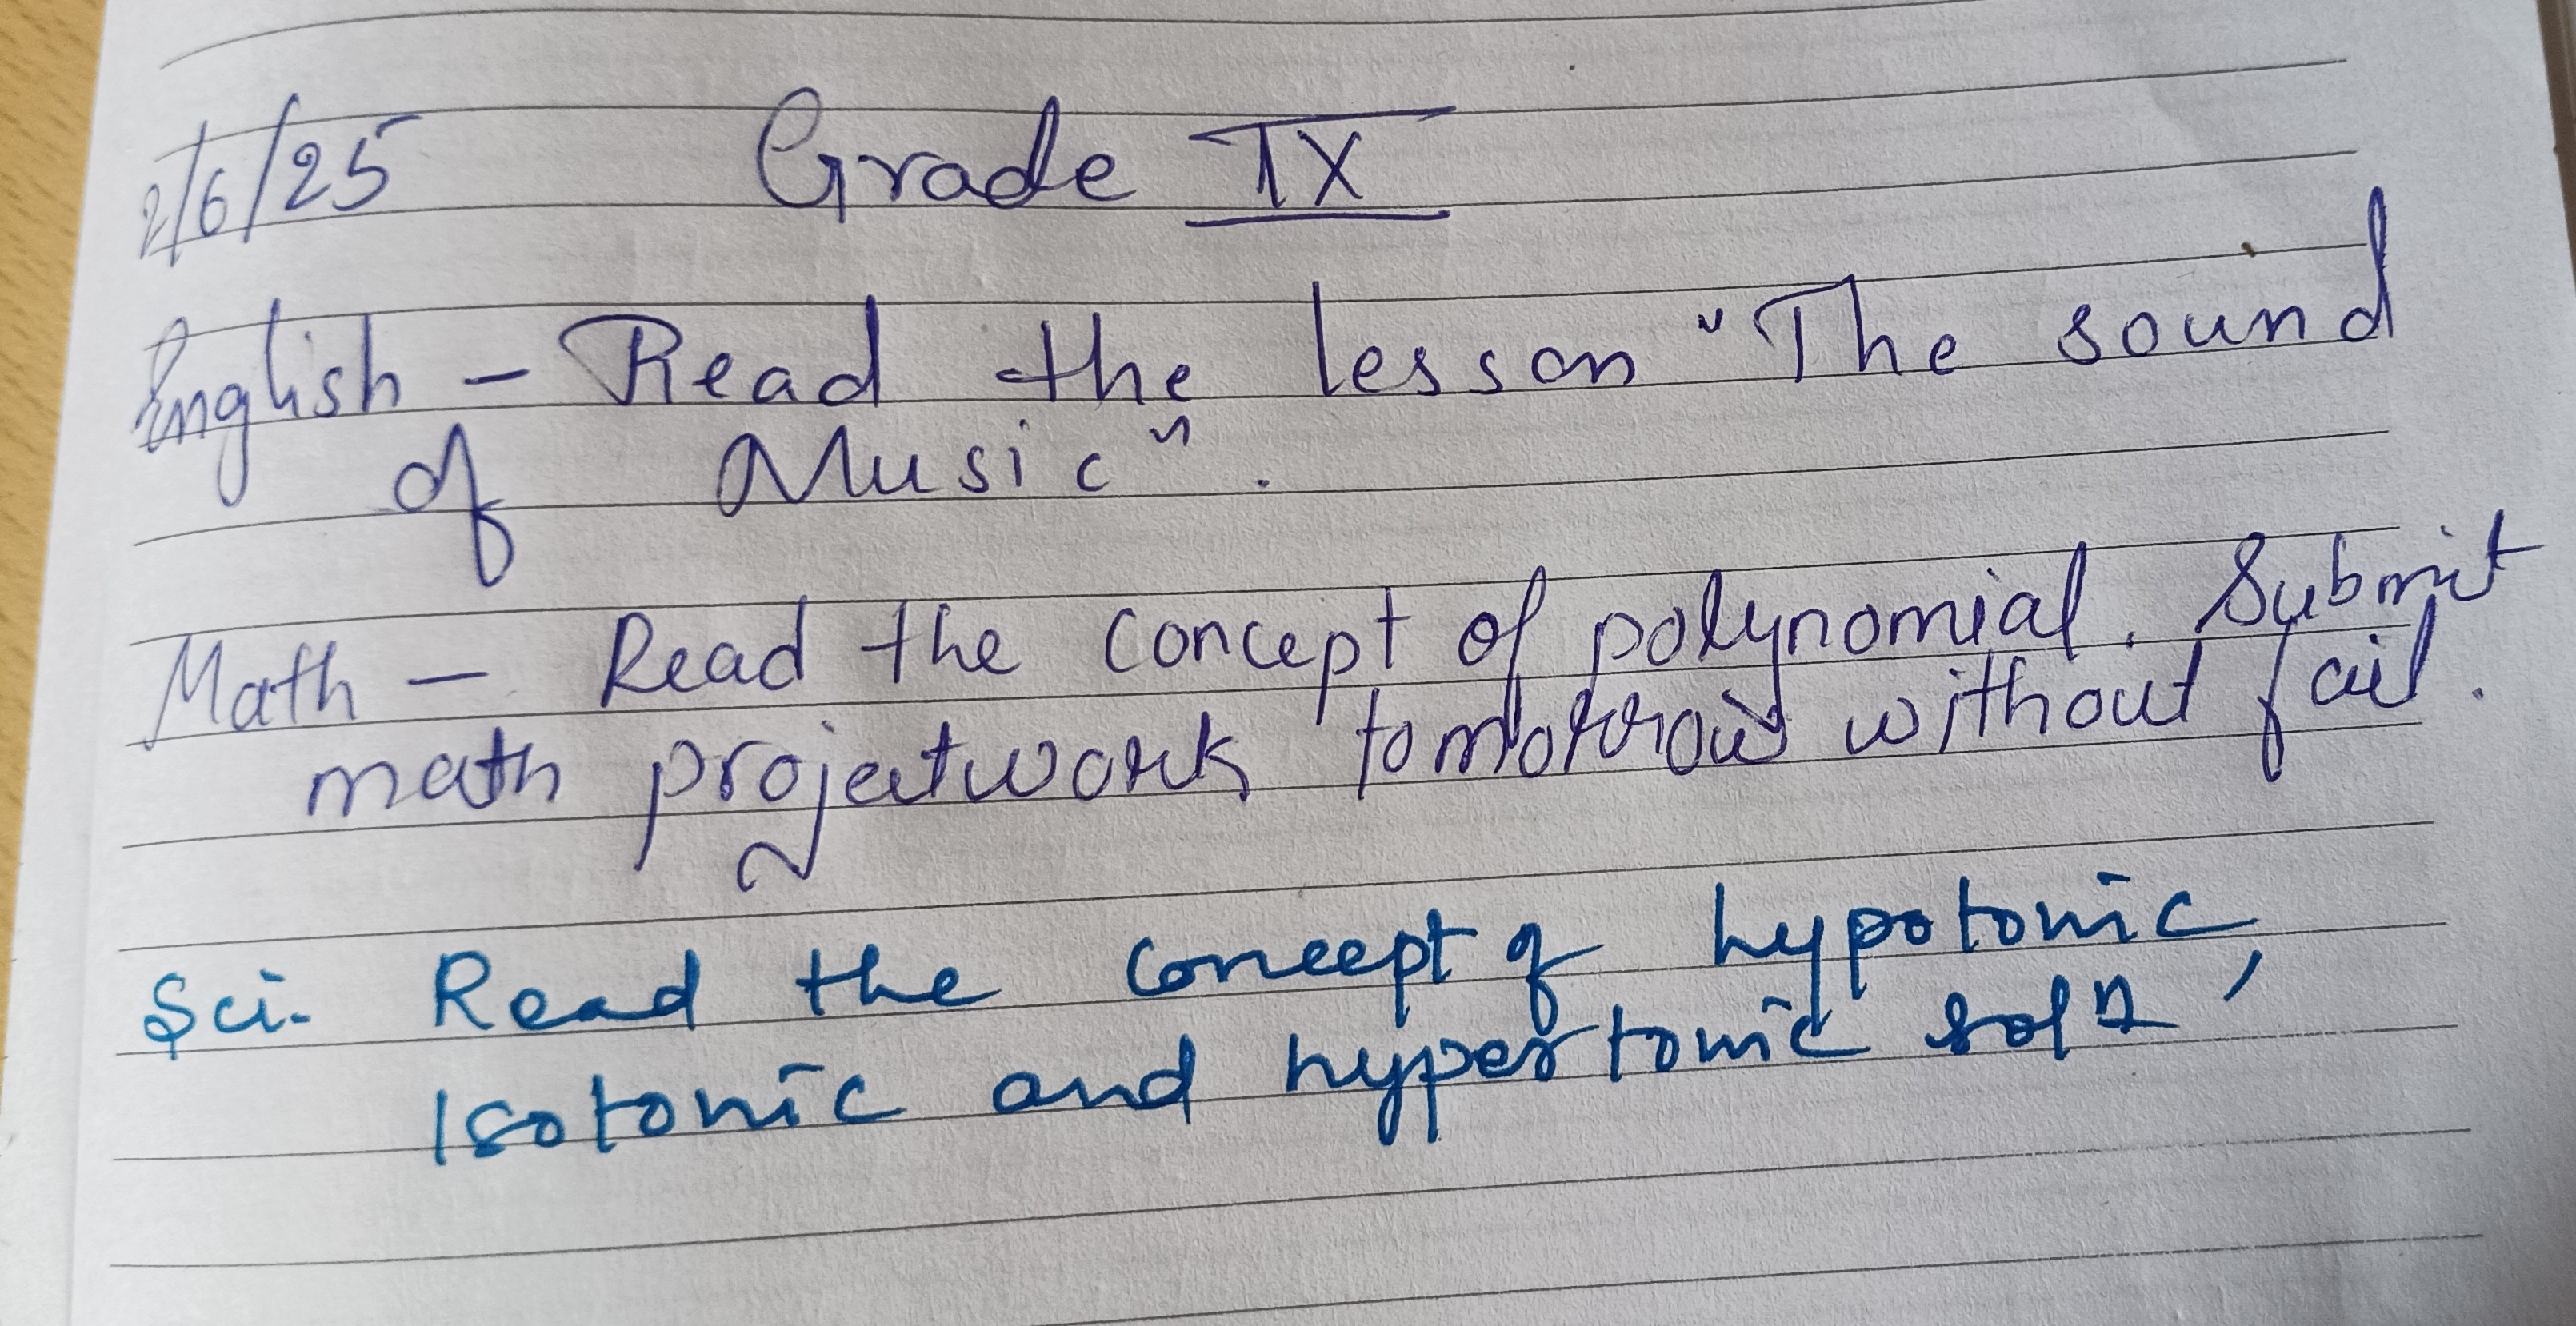 2/6/25 Grade IX
English - Read the lesson "The sound
of Music".
Math - Read the concept of polynomial. Submit
math projectwork tomorrow without fail.
Sci- Read the concept of hypotonic,
Isotonic and hypertonic solⁿ